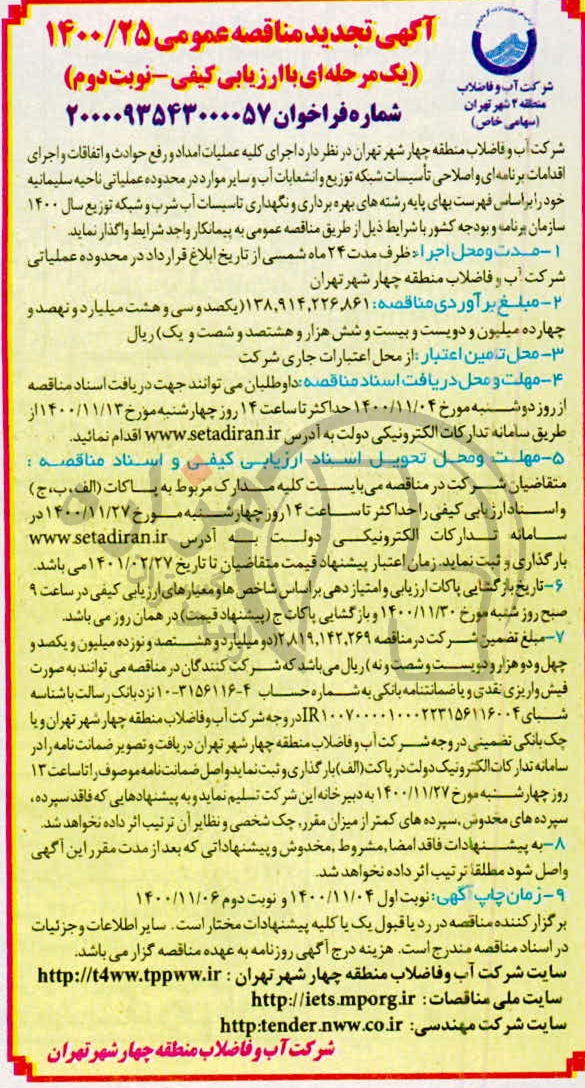 آگهی تجدید مناقصه عمومی ۱۴۰۰/۲۵
(یک مرحله‌ای با ارزیابی کیفی – نوبت دوم)
شماره فراخوان ۲۰۰۰۰۹۳۵۴۳۰۰۰۰۵۷
شرکت آب و فاضلاب
منطقه ۴ شهر تهران
(سهامی خاص)
شرکت آب و فاضلاب منطقه چهار شهر تهران در نظر دارد اجرای کلیه عملیات امداد و رفع حوادث و اتفاقات و اجرای
اقدامات برنامه ای و اصلاحی تأسیسات شبکه توزیع و انشعابات آب و سایر موارد در محدوده عملیاتی ناحیه سلیمانیه
خود را براساس فهرست بهای پایه رشته های بهره برداری و نگهداری تاسیسات آب شرب و شبکه توزیع سال ۱۴۰۰
سازمان برنامه و بودجه کشور با شرایط ذیل از طریق مناقصه عمومی به پیمانکار واجد شرایط واگذار نماید.
۱–مدت و محل اجرا: ظرف مدت ۲۴ ماه شمسی از تاریخ ابلاغ قرارداد در محدوده عملیاتی
شرکت آب و فاضلاب منطقه چهار شهر تهران
۲–مبلغ برآوردی مناقصه: ۱۳۸,۹۱۴,۲۲۶,۸۶۱(یکصد و سی و هشت میلیارد و نهصد و
چهارده میلیون و دویست و بیست و شش هزار و هشتصد و شصت و یک) ریال
۳–محل تامین اعتبار: از محل اعتبارات جاری شرکت
۴–مهلت و محل دریافت اسناد مناقصه: داوطلبان می توانند جهت دریافت اسناد مناقصه
از روز دوشنبه مورخ ۱۴۰۰/۱۱/۰۴ حداکثر تا ساعت ۱۴ روز چهارشنبه مورخ ۱۴۰۰/۱۱/۱۳ از
طریق سامانه تدارکات الکترونیکی دولت به آدرس www.setadiran.ir اقدام نمائید.
۵–مهلت و محل تحویل اسناد ارزیابی کیفی و اسناد مناقصه :
متقاضیان شرکت در مناقصه می بایست کلیه مدارک مربوط به پاکات (الف، ب، ج)
و اسناد ارزیابی کیفی را حداکثر تا ساعت ۱۴ روز چهارشنبه مورخ ۱۴۰۰/۱۱/۲۷ در
سامانه تدارکات الکترونیکی دولت به آدرس www.setadiran.ir
بارگذاری و ثبت نماید. زمان اعتبار پیشنهاد قیمت متقاضیان تا تاریخ ۱۴۰۱/۰۲/۲۷ می باشد.
۶–تاریخ بازگشایی پاکات ارزیابی و امتیازدهی براساس شاخص ها و معیارهای ارزیابی کیفی در ساعت ۹
صبح روز شنبه مورخ ۱۴۰۰/۱۱/۳۰ و بازگشایی پاکات ج (پیشنهاد قیمت) در همان روز می باشد.
۷–مبلغ تضمین شرکت در مناقصه ۲,۸۱۹,۱۴۲,۲۶۹(دو میلیارد و هشتصد و نوزده میلیون و یکصد و
چهل و دو هزار و دویست و شصت و نه) ریال می باشد که شرکت کنندگان در مناقصه می توانند به صورت
فیش واریزی نقدی و یا ضمانتنامه بانکی به شماره حساب ۴–۳۱۵۶۱۱۶–۱۰ نزد بانک رسالت با شناسه
شبای IR۱۰۰۷۰۰۰۰۱۰۰۰۲۲۳۱۵۶۱۱۶۰۰۴ در وجه شرکت آب و فاضلاب منطقه چهار شهر تهران و یا
چک بانکی تضمینی در وجه شرکت آب و فاضلاب منطقه چهار شهر تهران دریافت و تصویر ضمانت نامه را در
سامانه تدارکات الکترونیک دولت در پاکت (الف) بارگذاری و ثبت نماید و اصل ضمانت نامه موصوف را تا ساعت ۱۳
روز چهارشنبه مورخ ۱۴۰۰/۱۱/۲۷ به دبیرخانه این شرکت تسلیم نماید و به پیشنهادهایی که فاقد سپرده،
سپرده های مخدوش، سپرده های کمتر از میزان مقرر، چک شخصی و نظایر آن ترتیب اثر داده نخواهد شد.
۸–به پیشنهادات فاقد امضا، مشروط، مخدوش و پیشنهاداتی که بعد از مدت مقرر این آگهی
واصل شود مطلقا ترتیب اثر داده نخواهد شد.
۹–زمان چاپ آگهی: نوبت اول ۱۴۰۰/۱۱/۰۴ و نوبت دوم ۱۴۰۰/۱۱/۰۶
برگزار کننده مناقصه در رد یا قبول یک یا کلیه پیشنهادات مختار است. سایر اطلاعات و جزئیات
در اسناد مناقصه مندرج است. هزینه درج آگهی روزنامه به عهده مناقصه گزار می باشد.
سایت شرکت آب و فاضلاب منطقه چهار شهر تهران : http://t4ww.tppww.ir
سایت ملی مناقصات: http://iets.mporg.ir
سایت شرکت مهندسی: http:tender.nww.co.ir
شرکت آب و فاضلاب منطقه چهار شهر تهران